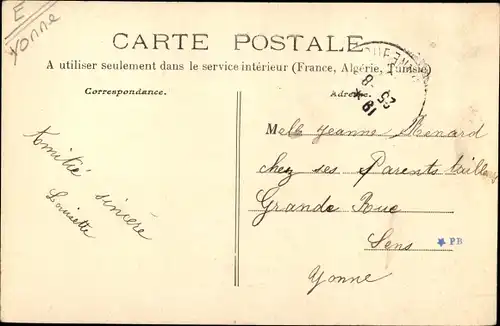 E
Yonne
CARTE POSTALE
A utiliser seulement dans le service intérieur (France, Algérie, Tunisie)
Correspondance.
Adresse.
25 -8
18
Amitié sincère
Louisette
Melle Jeanne Menard
chez ses Parents tailleurs
Grande Rue
Sens
★ PB
Yonne